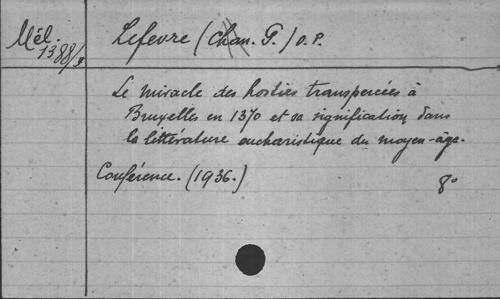 Mél.
1388/4
Lefevre (Chan. G.) O.P.
Le miracle des hosties transpercées à
Bruxelles en 1370 et sa signification dans
la littérature eucharistique du moyen-âge.
Conférence. (1936.)
8°